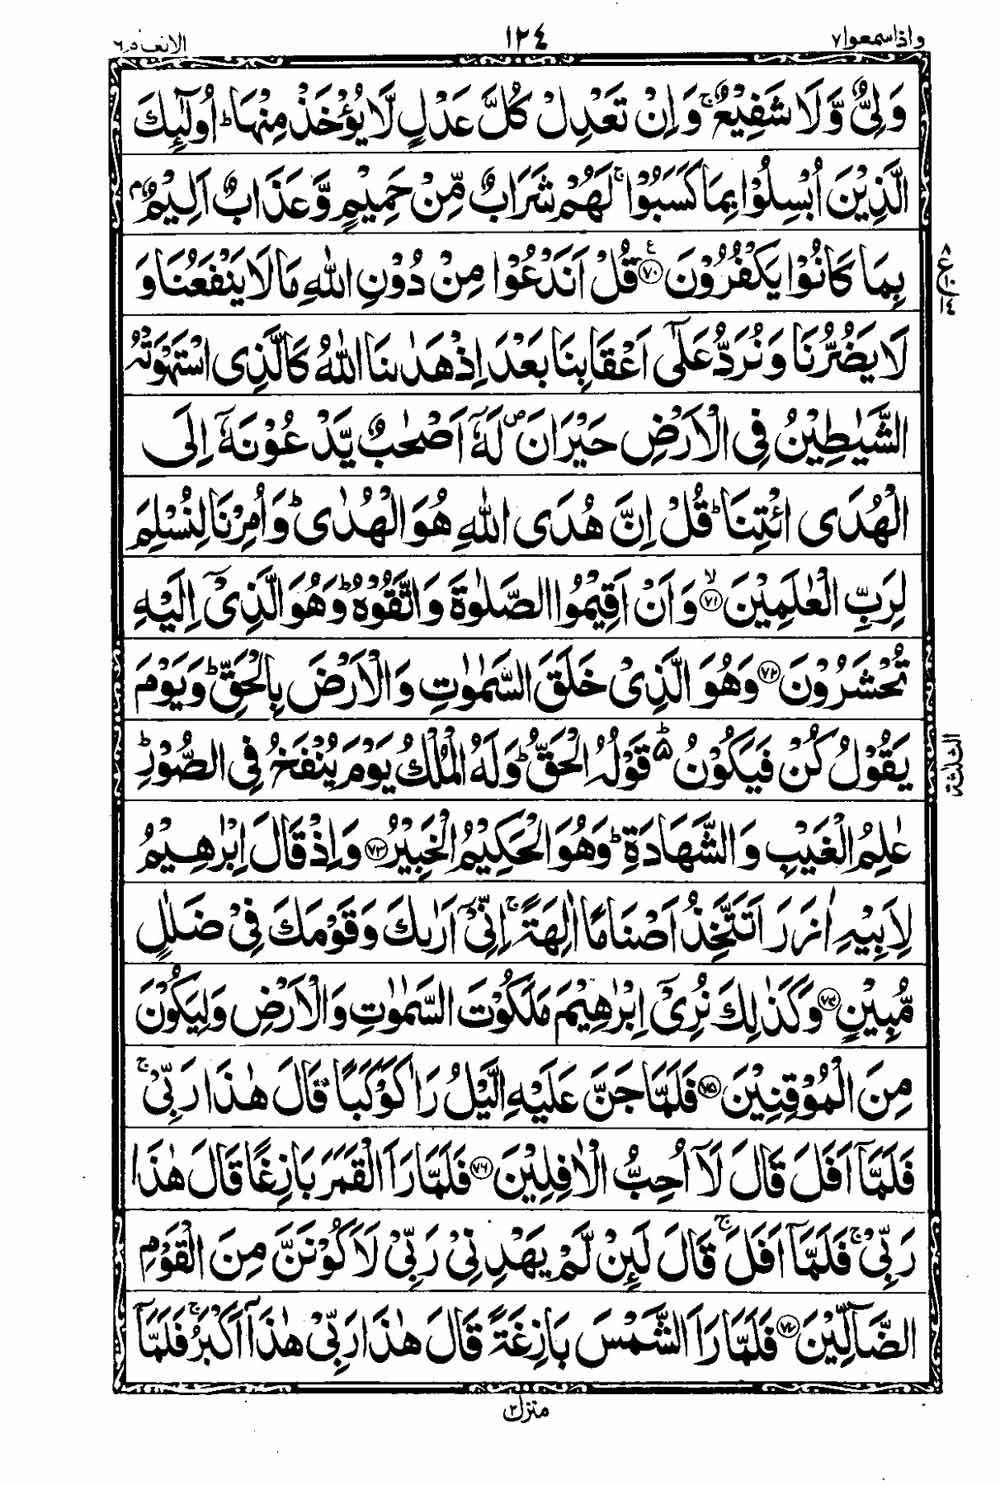 واذا سمعوا ٧ ١٢٤ الانعام ٦
وَلِيٌّ وَّلَا شَفِيْعٌ ۚ وَاِنْ تَعْدِلْ كُلَّ عَدْلٍ لَّا يُؤْخَذْ مِنْهَا ؕ اُولٰٓئِكَ
الَّذِيْنَ اُبْسِلُوْا بِمَا كَسَبُوْا ۚ لَهُمْ شَرَابٌ مِّنْ حَمِيْمٍ وَّعَذَابٌ اَلِيْمٌۢ
بِمَا كَانُوْا يَكْفُرُوْنَ ﴿۷۰﴾ قُلْ اَنَدْعُوْا مِنْ دُوْنِ اللّٰهِ مَا لَا يَنْفَعُنَا وَ
لَا يَضُرُّنَا وَنُرَدُّ عَلٰٓى اَعْقَابِنَا بَعْدَ اِذْ هَدٰىنَا اللّٰهُ كَالَّذِى اسْتَهْوَتْهُ
الشَّيٰطِيْنُ فِى الْاَرْضِ حَيْرَانَ ۪ لَهٗۤ اَصْحٰبٌ يَّدْعُوْنَهٗۤ اِلَى
الْهُدَى ائْتِنَا ؕ قُلْ اِنَّ هُدَى اللّٰهِ هُوَ الْهُدٰى ؕ وَاُمِرْنَا لِنُسْلِمَ
لِرَبِّ الْعٰلَمِيْنَ ﴿۷۱﴾ۙ وَاَنْ اَقِيْمُوا الصَّلٰوةَ وَاتَّقُوْهُ ؕ وَهُوَ الَّذِيْۤ اِلَيْهِ
تُحْشَرُوْنَ ﴿۷۲﴾ وَهُوَ الَّذِيْ خَلَقَ السَّمٰوٰتِ وَالْاَرْضَ بِالْحَقِّ ؕ وَيَوْمَ
يَقُوْلُ كُنْ فَيَكُوْنُ ۬ؕ قَوْلُهُ الْحَقُّ ؕ وَلَهُ الْمُلْكُ يَوْمَ يُنْفَخُ فِى الصُّوْرِ ؕ
عٰلِمُ الْغَيْبِ وَالشَّهَادَةِ ؕ وَهُوَ الْحَكِيْمُ الْخَبِيْرُ ﴿۷۳﴾ وَاِذْ قَالَ اِبْرٰهِيْمُ
لِاَبِيْهِ اٰزَرَ اَتَتَّخِذُ اَصْنَامًا اٰلِهَةً ۚ اِنِّيْۤ اَرٰىكَ وَقَوْمَكَ فِيْ ضَلٰلٍ
مُّبِيْنٍ ﴿۷۴﴾ وَكَذٰلِكَ نُرِيْۤ اِبْرٰهِيْمَ مَلَكُوْتَ السَّمٰوٰتِ وَالْاَرْضِ وَلِيَكُوْنَ
مِنَ الْمُوْقِنِيْنَ ﴿۷۵﴾ فَلَمَّا جَنَّ عَلَيْهِ الَّيْلُ رَاٰ كَوْكَبًا ۚ قَالَ هٰذَا رَبِّيْ ۚ
فَلَمَّاۤ اَفَلَ قَالَ لَاۤ اُحِبُّ الْاٰفِلِيْنَ ﴿۷۶﴾ فَلَمَّا رَاَ الْقَمَرَ بَازِغًا قَالَ هٰذَا
رَبِّيْ ۚ فَلَمَّاۤ اَفَلَ ۚ قَالَ لَئِنْ لَّمْ يَهْدِنِيْ رَبِّيْ لَاَكُوْنَنَّ مِنَ الْقَوْمِ
الضَّآلِّيْنَ ﴿۷۷﴾ فَلَمَّا رَاَ الشَّمْسَ بَازِغَةً قَالَ هٰذَا رَبِّيْ هٰذَاۤ اَكْبَرُ ۚ فَلَمَّاۤ
الثلثة
منزل ۲